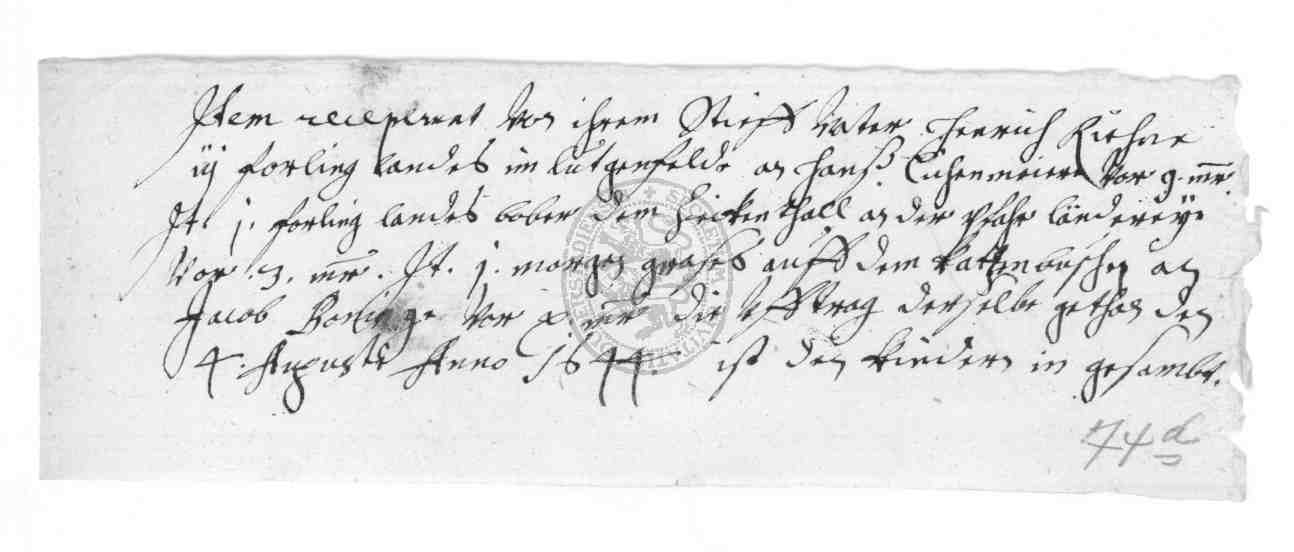 Item receperunt von ihrem Stieff Vater Henrich Kiehne
iij forling landes im lutgenfelde an Hanß Eichenmeiers vor 9. mr.
It. j. forling landes bober dem Heickenthall an der Pfahr ländereye
vor 3. mr. It. j. morgen grases auff dem Katzenbuschen an
Jacob Boninge vor x mr die Ufftrag derselbe gethan den
4. Augusti Anno 1644. ist den kindern in gesambt.
74d